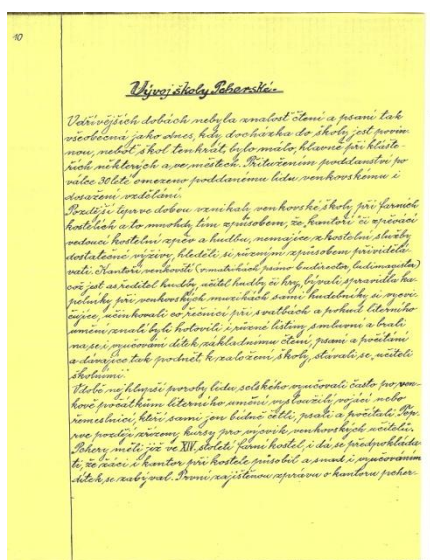 10
Vývoj školy Pcherské.
V dřívějších dobách nebyla znalost čtení a psaní tak
všeobecná jako dnes, kdy docházka do školy jest povin-
nou, neboť škol tenkrát bylo málo, hlavně při klášte-
řích některých a ve městech. Přitužením poddanství po
válce 30leté omezeno poddanému lidu venkovskému i
dosažení vzdělání.
Později teprve dobou vznikaly venkovské školy při farních
kostelích a to mnohdy tím způsobem, že kantoři či zpěváci
vedoucí kostelní zpěv a hudbu, nemajíce z kostelní služby
dostatečné výživy, hleděli si různým způsobem přividělá-
vati. Kantoři venkovští (v matrikách psáno ludirector, ludimagister)
což jest asi ředitel hudby, učitel hudby či hry, bývali zpravidla ka-
pelníky při venkovských muzikách sami hudebníky si vycvi-
čujíce, účinkovali co řečníci při svatbách a pokud literního
umění znalí byli hotovili i různé listiny, smlouvy a brali
na se i vyučování dítek základnímu čtení, psaní a počítání
a dávajíce tak podnět k založení školy, stávali se učiteli
školními.
V době nejhlupší poroby lidu selského vyučovali často po ven-
kově počátkům literního umění vysloužilí vojáci nebo
řemeslníci, kteří sami jen bídně četli, psali a počítali. Tepr-
ve později zřízeny kursy pro výcvik venkovských učitelů.
Pchery měli již ve XIV. století farní kostel, i dá se předpokláda-
ti, že žáci i kantor při kostele působil a snad i vyučováním
dítek se zabýval. První zajištěnou zprávu o kantoru pcher-